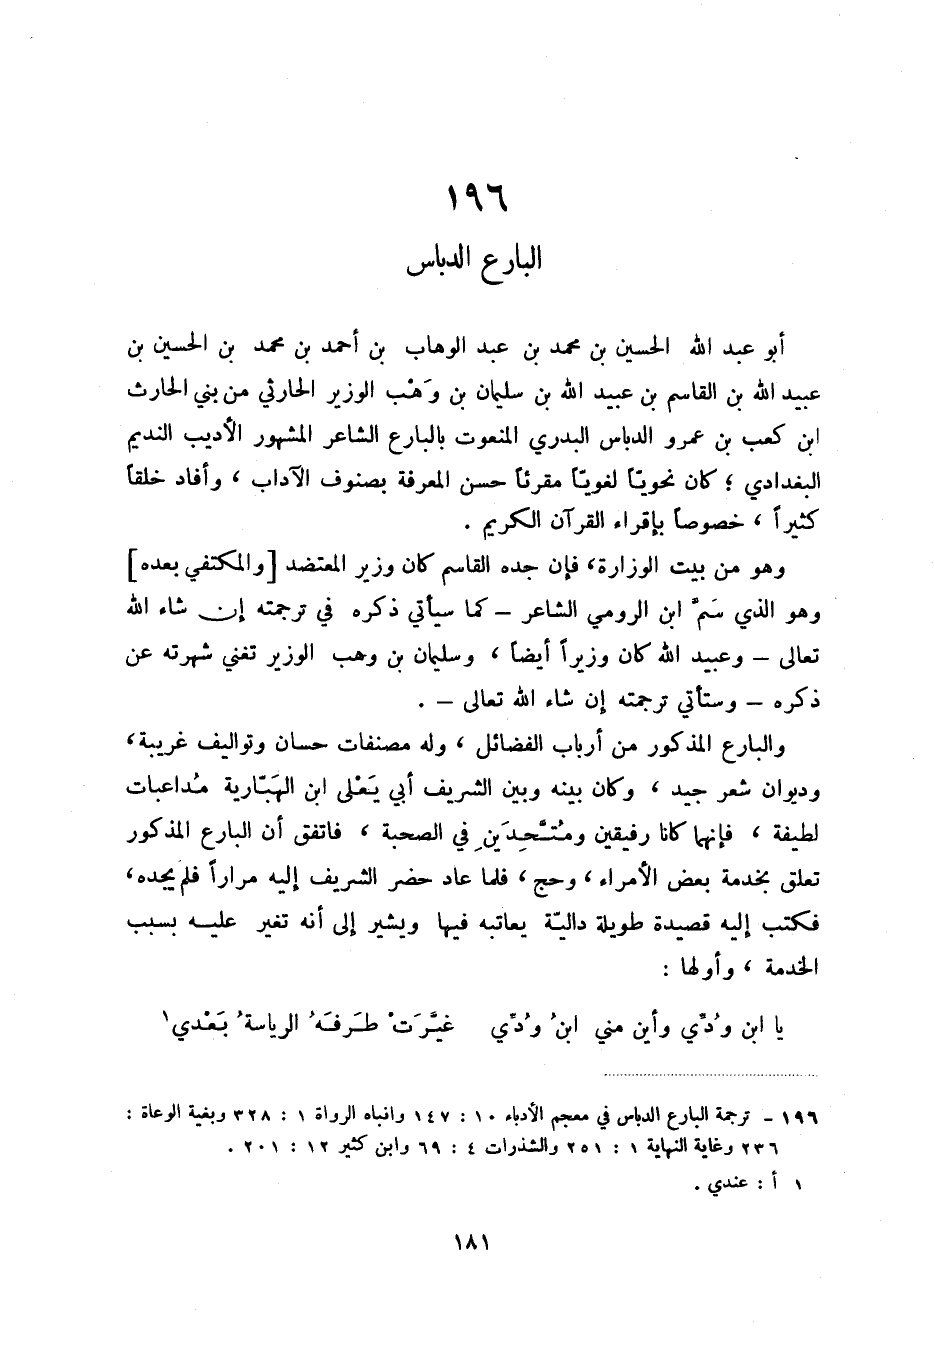 ١٩٦
البارع الدباس
أبو عبد الله الحسين بن محمد بن عبد الوهاب بن أحمد بن محمد بن الحسين بن
عبيد الله بن القاسم بن عبيد الله بن سليمان بن وَهْب الوزير الحارثي من بني الحارث
ابن كعب بن عمرو الدباس البدري المنعوت بالبارع الشاعر المشهور الأديب النديم
البغدادي ؛ كان نحويّاً لغويّاً مقرئاً حسن المعرفة بصنوف الآداب ، وأفاد خلقاً
كثيراً ، خصوصاً بإقراء القرآن الكريم .
وهو من بيت الوزارة، فإن جده القاسم كان وزير المعتضد [والمكتفي بعده]
وهو الذي سَمَّ ابن الرومي الشاعر – كما سيأتي ذكره في ترجمته إن شاء الله
تعالى – وعبيد الله كان وزيراً أيضاً ، وسليمان بن وهب الوزير تغني شهرته عن
ذكره – وستأتي ترجمته إن شاء الله تعالى – .
والبارع المذكور من أرباب الفضائل ، وله مصنفات حسان وتواليف غريبة،
وديوان شعر جيد ، وكان بينه وبين الشريف أبي يَعْلى ابن الهَبّارية مُداعبات
لطيفة ، فإنهما كانا رفيقين ومُتَّحِدَينِ في الصحبة ، فاتفق أن البارع المذكور
تعلق بخدمة بعض الأمراء ، وحج ، فلما عاد حضر الشريف إليه مراراً فلم يجده،
فكتب إليه قصيدة طويلة داليّة يعاتبه فيها ويشير إلى أنه تغير عليه بسبب
الخدمة ، وأولها :
يا ابن وُدّي وأين مني ابنُ وُدّي غيَّرَتْ طَرفَهُ الرياسةُ بَعْدي١
١٩٦ – ترجمة البارع الدباس في معجم الأدباء ١٠ : ١٤٧ وانباه الرواة ١ : ٣٢٨ وبغية الوعاة :
٢٣٦ وغاية النهاية ١ : ٢٥١ والشذرات ٤ : ٦٩ وابن كثير ١٢ : ٢٠١ .
١ أ : عندي .
١٨١